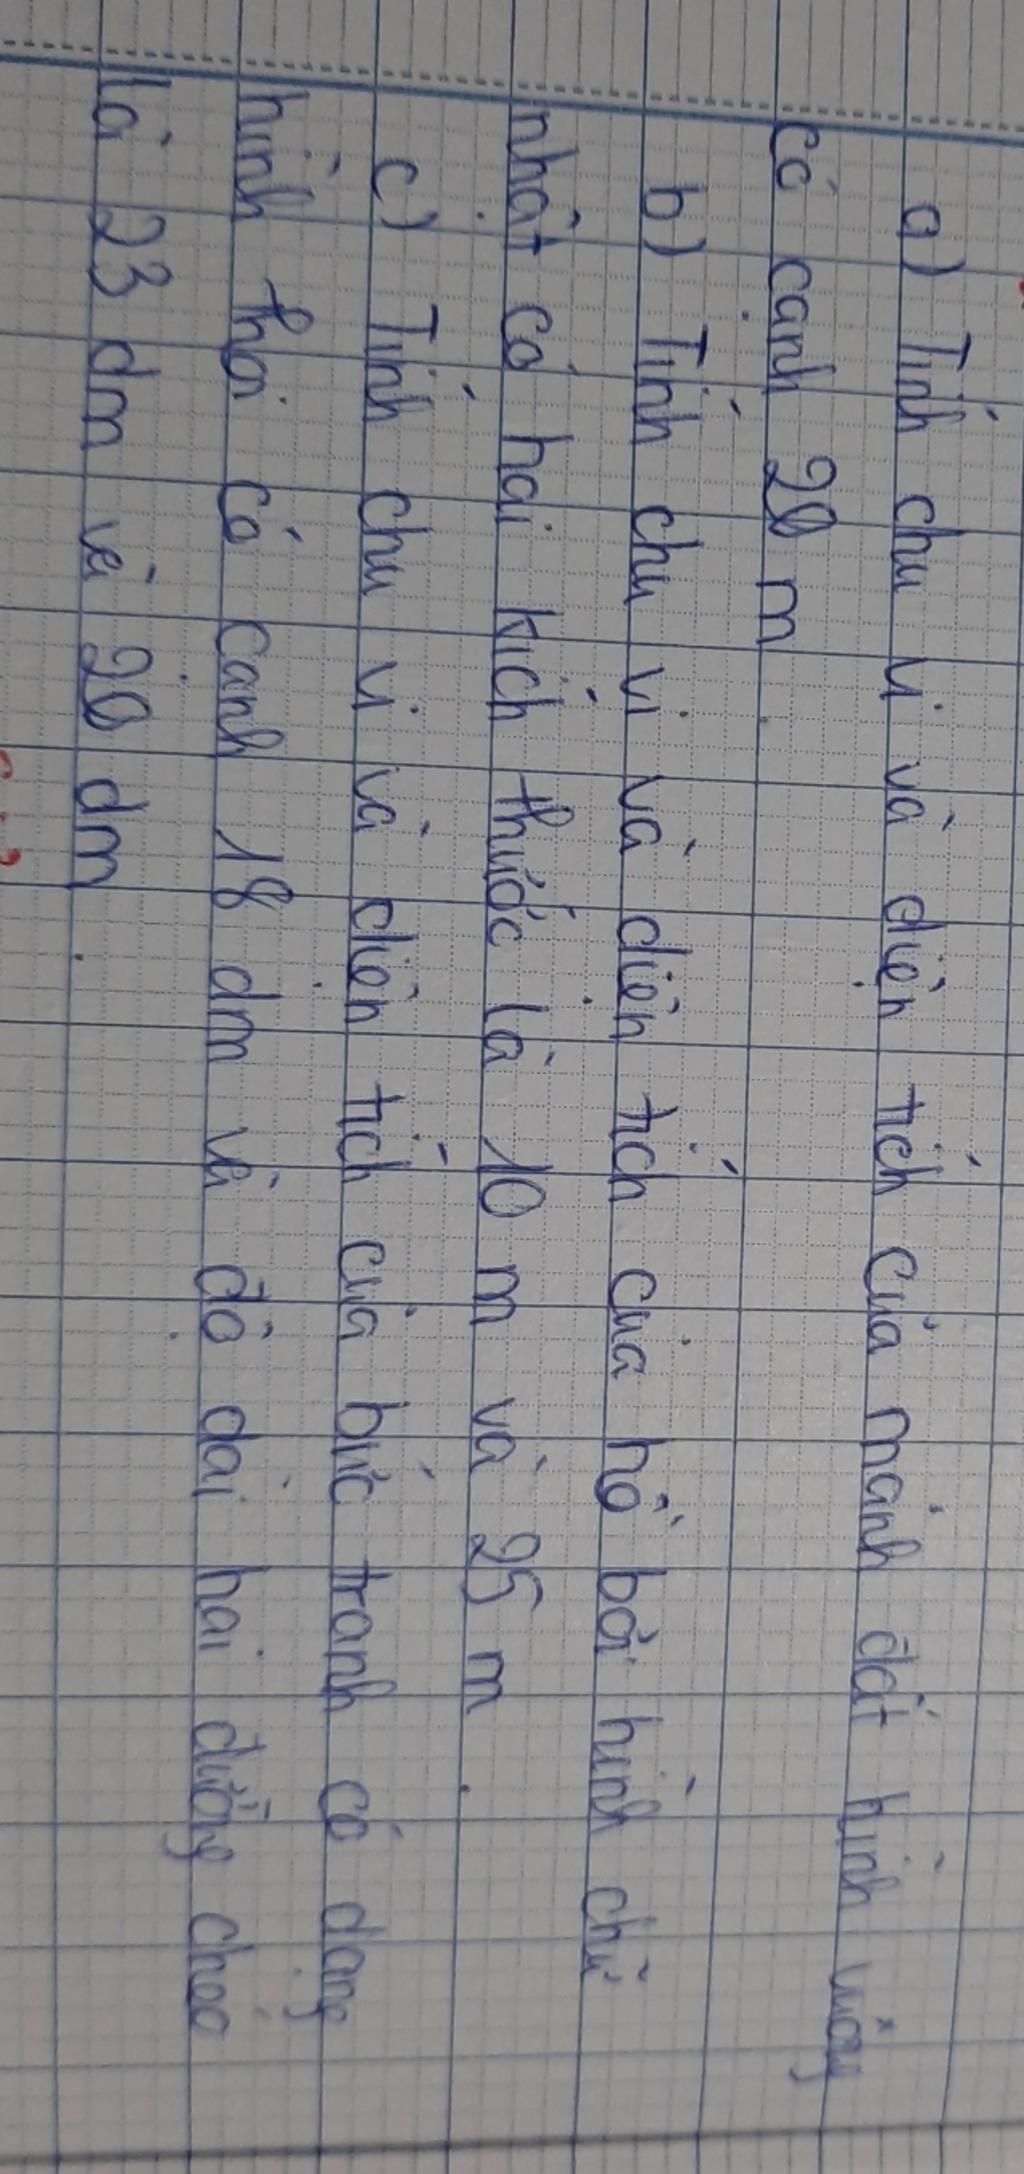 a) Tính chu vi và diện tích của mảnh đất hình vuông
có cạnh 20 m.
b) Tính chu vi và diện tích của hồ bơi hình chữ
nhật có hai kích thước là 10 m và 25 m.
c) Tính chu vi và diện tích của bức tranh có dạng
hình thoi có cạnh 18 dm và độ dài hai đường chéo
là 23 dm và 20 dm.